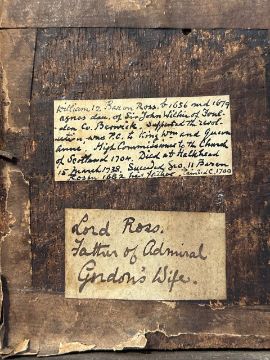 William 12. Baron Ross. b 1656 md 1679
agnes dau. of Sir John Wilkie of Foul-
den Co. Berwick. Supported the revol-
ution was P.C. to King Wm and Queen
Anne. High Commissioner to the Church
of Scotland 1704. Died at Halkhead
15 March 1738. Suc'ded Geo. 11 Baron
Ross 1682 his Father.
Lord Ross.
Father of Admiral
Gordon's Wife.